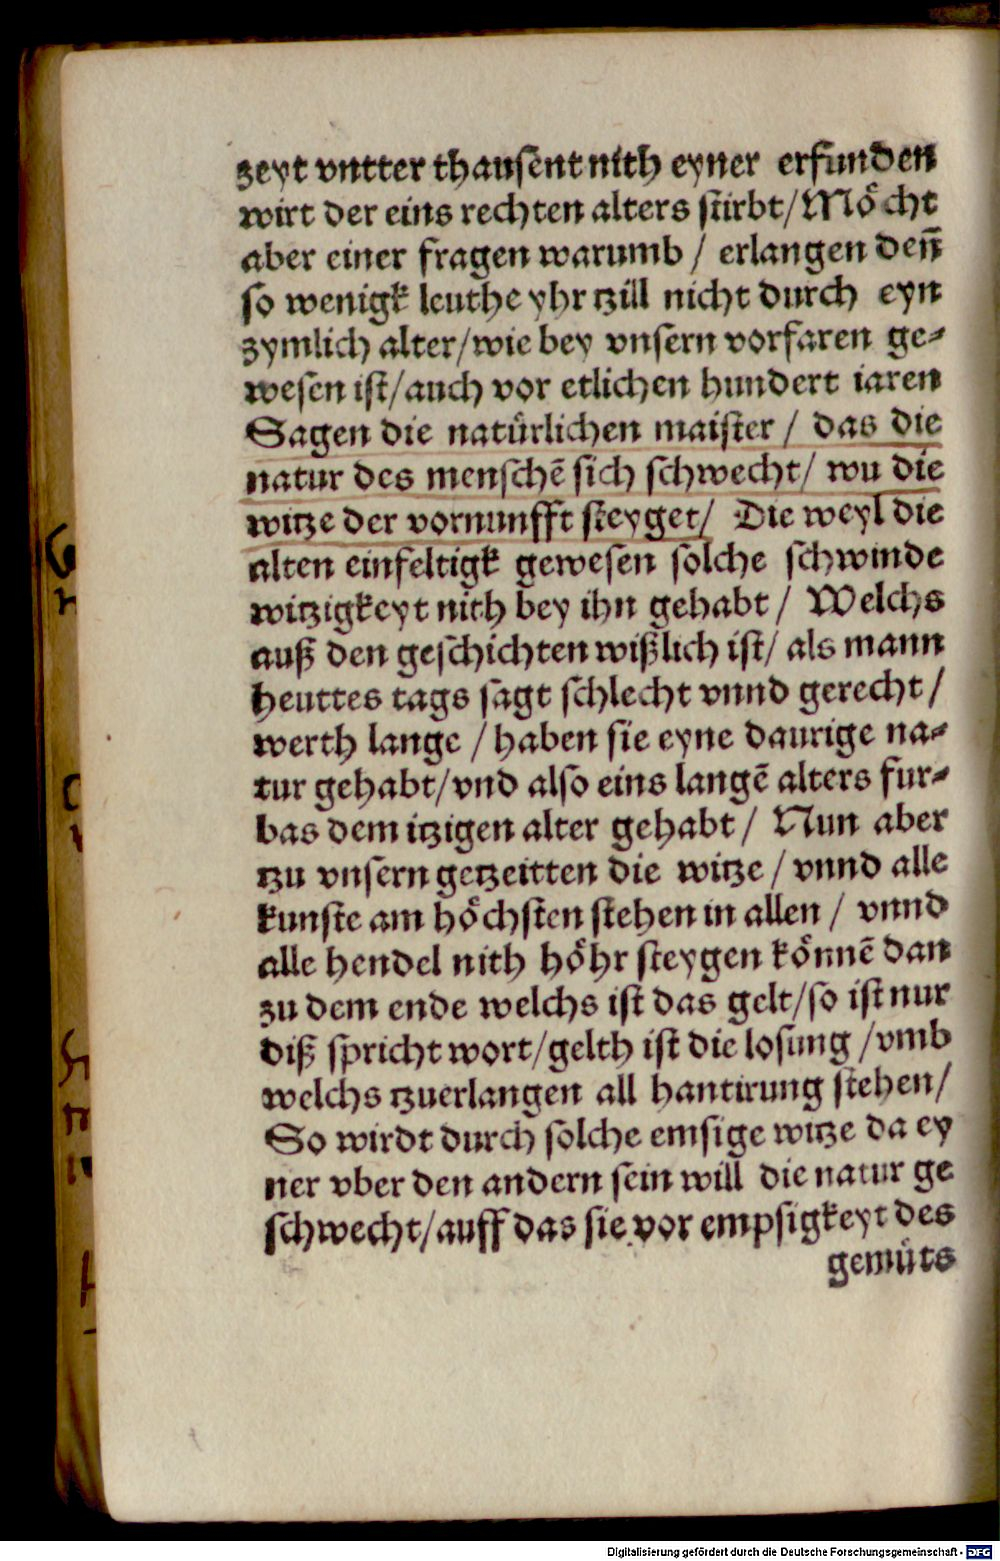 zeyt vntter thausent nith eyner erfunden
wirt der eins rechten alters stirbt/Mo̊cht
aber einer fragen warumb / erlangen den̄
so wenigk leuthe yhr tzill nicht durch eyn
zymlich alter/wie bey vnsern vorfaren ge⸗
wesen ist/auch vor etlichen hundert iaren
Sagen die natu̇rlichen maister / das die
natur des menschē sich schwecht/ wu die
witze der vornunfft steyget/ Die weyl die
alten einfeltigk gewesen solche schwinde
witzigkeyt nith bey ihn gehabt / Welchs
auß den geschichten wißlich ist/ als mann
heuttes tags sagt schlecht vnnd gerecht /
werth lange / haben sie eyne daurige na⸗
tur gehabt/vnd also eins langē alters fur⸗
bas dem itzigen alter gehabt / Nun aber
tzu vnsern getzeitten die witze / vnnd alle
kunste am ho̊chsten stehen in allen / vnnd
alle hendel nith ho̊hr steygen ko̊nnē dan
zu dem ende welchs ist das gelt/so ist nur
diß spricht wort/gelth ist die losung /vmb
welchs tzuerlangen all hantirung stehen/
So wirdt durch solche emsige witze da ey
ner vber den andern sein will die natur ge
schwecht/auff das sie vor empsigkeyt des
gemůts
Digitalisierung gefördert durch die Deutsche Forschungsgemeinschaft - DFG